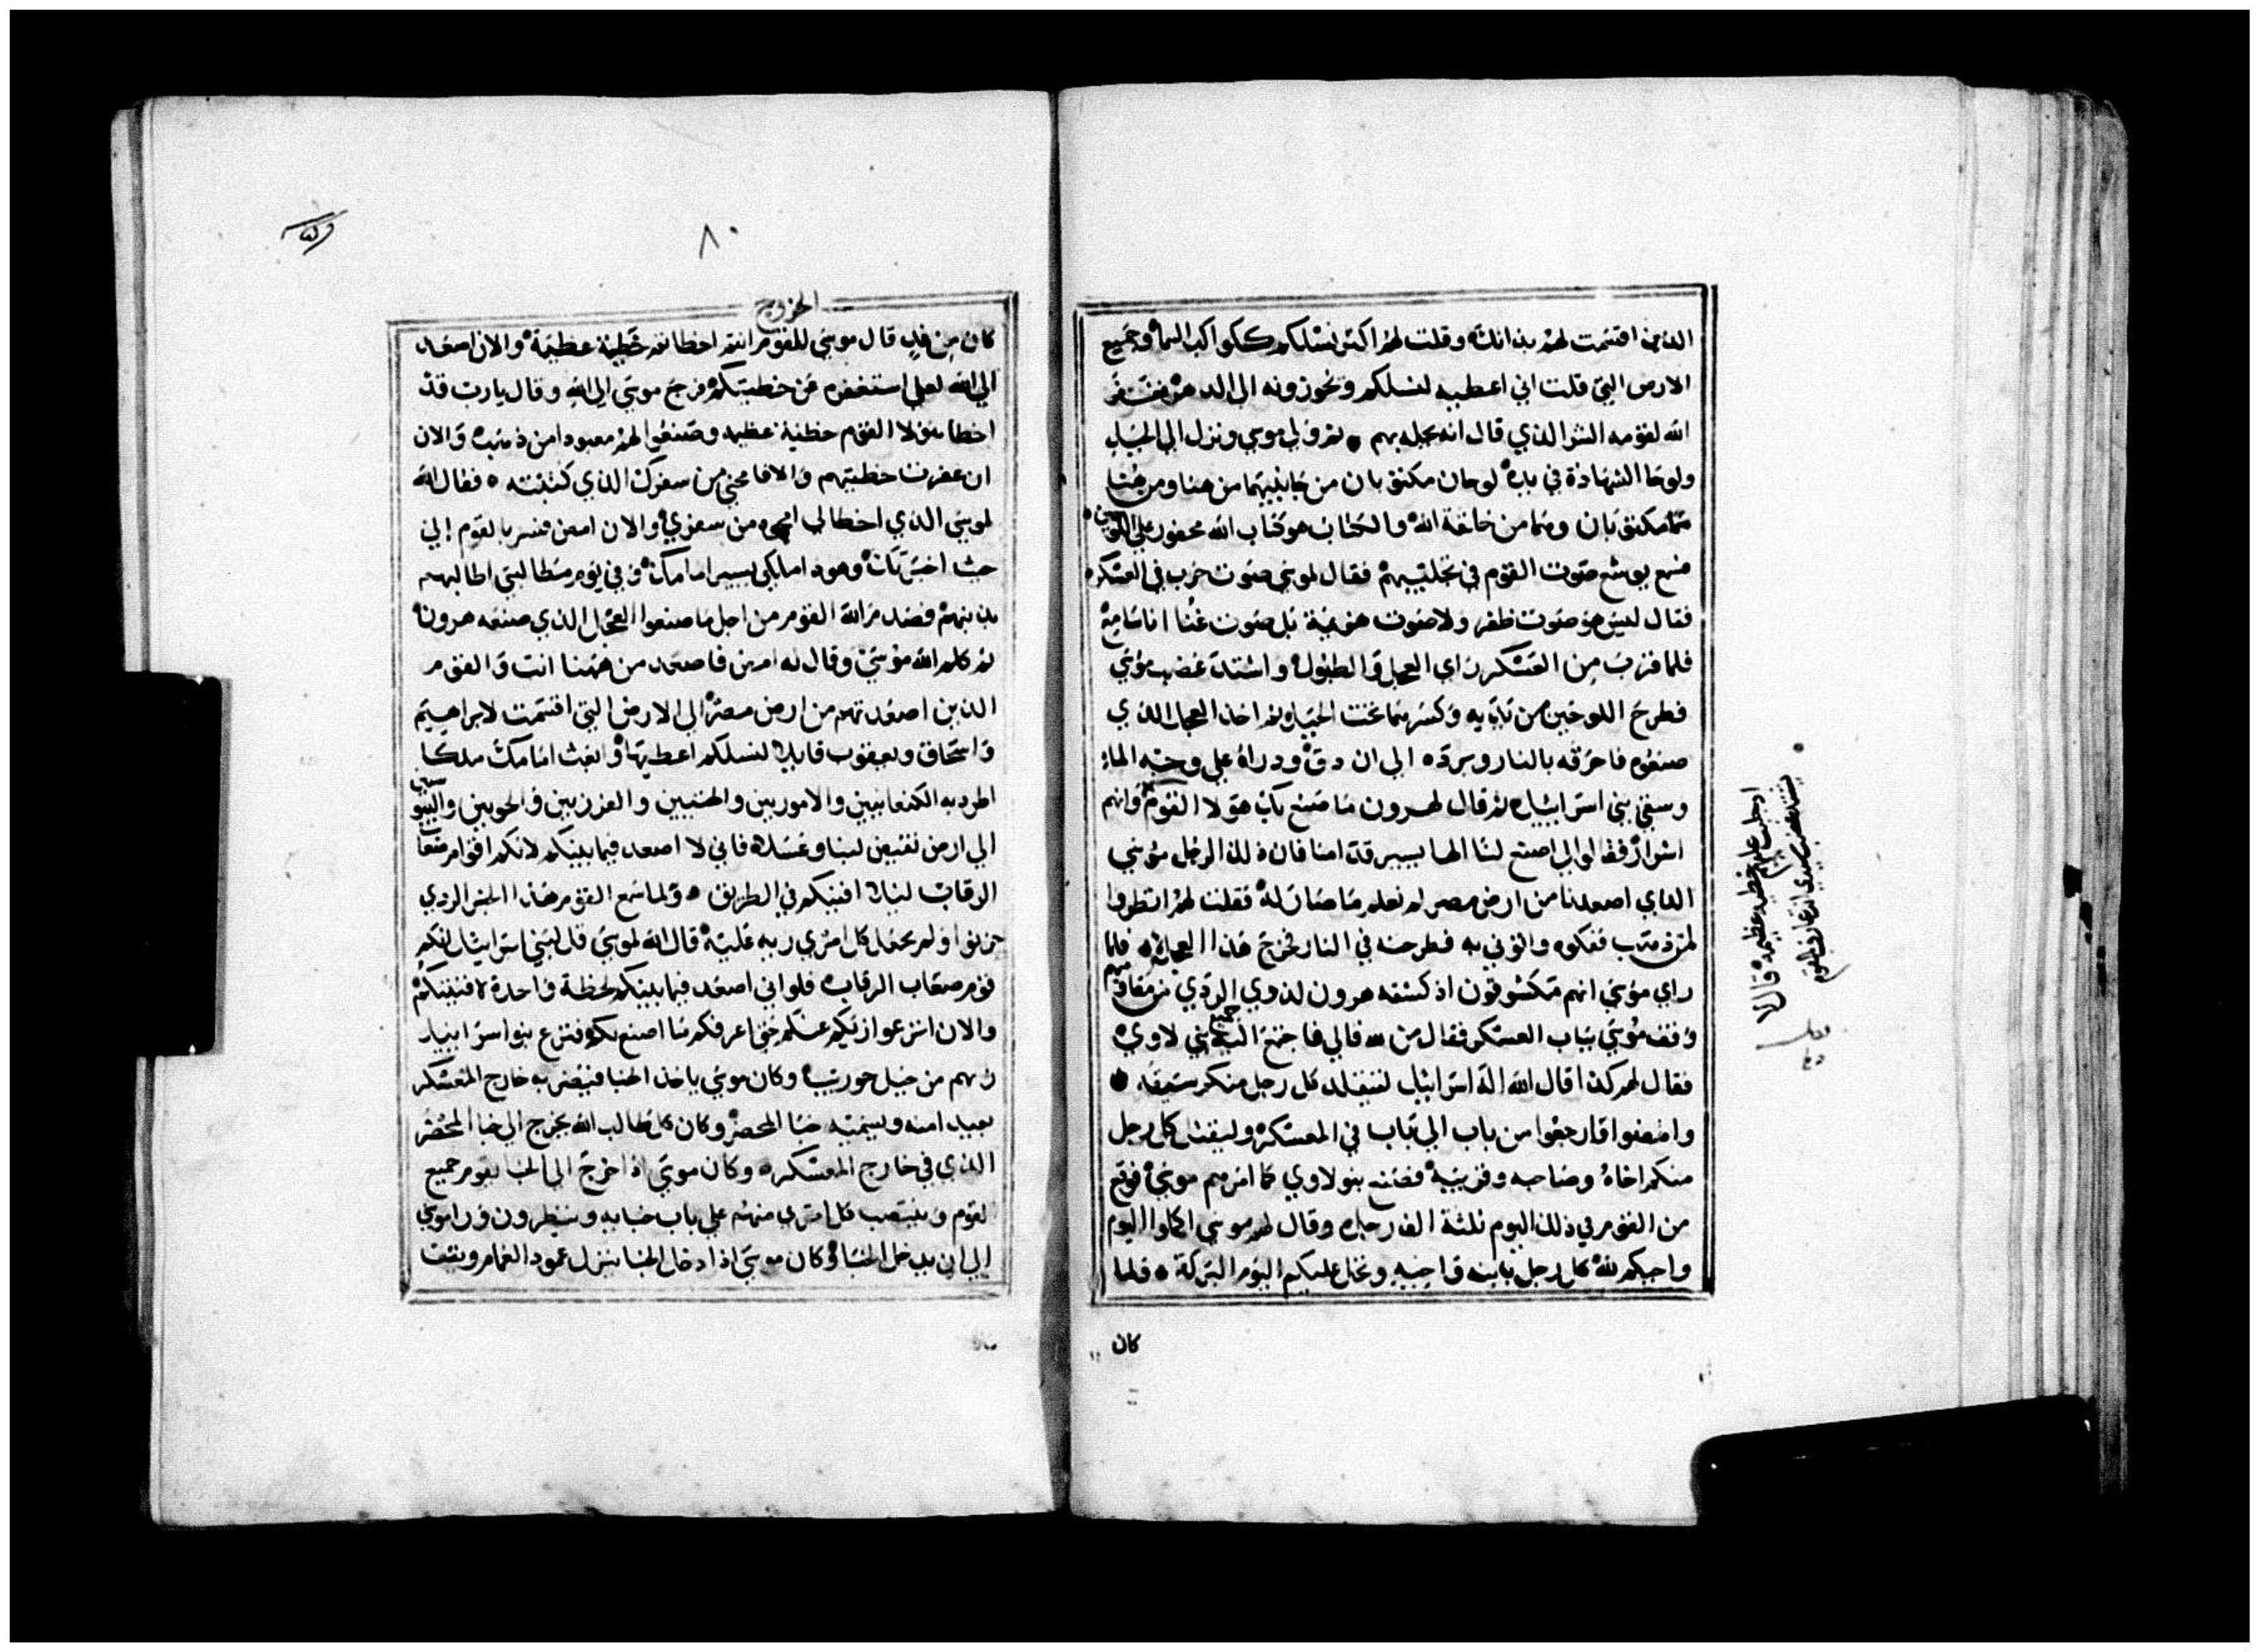 الذين اقتسمت لهم بذاتك وقلت لهم اكثر نسلكم ككواكب السما وجميع
الارض التي قلت اني اعطيه لنسلكم ويحوزونه الي الدهر فغفر
الله لقومه الشر الذي قال انه يحله بهم ثم ولي موسي ونزل الي الجبل
ولوحا الشهادة في يده لوحان مكتوبان من جانبيهما من هنا ومن هنا
هما مكتوبان وهما من خلقة الله والكتاب هو كتاب الله محفور علي اللوحين
فسمع يوشع صوت القوم في تجلبيهم فقال لموسي صوت حرب في العسكر
فقال ليس هو صوت ظفر ولا صوت هزيمة بل صوت غنا انا سامع
فلما قرب من العسكر راي العجل والطبول واشتد غضب موسي
فطرح اللوحين من يديه وكسرهما تحت الجبل ثم اخذ العجل الذي
صنعوه فاحرقه بالنار وبرده الي ان دق وذراه علي وجه الماء
وسقي بني اسراييل ثم قال لهرون ما صنع بك هولا القوم
اشرار فقالوا لي اصنع لنا الها يسير قدامنا فان ذلك الرجل موسي
الذي اصعدنا من ارض مصر لم نعلم ما صار له فقلت لهم انظروا
لمن ذهب ففكوه واتوني به فطرحته في النار فخرج هذا العجل فلما
راي موسي انهم مكشوفون اذ كشفه هرون لذوي الردي من مقاوميهم
وقف موسي بباب العسكر فقال من لله فالي فاجتمع اليه جميع بني لاوي
فقال لهم كذا قال الله اله اسراييل ليتقلد كل رجل منكم سيفه
وامضوا وارجعوا من باب الي باب في المعسكر وليقتل كل رجل
منكم اخاه وصاحبه وقريبه فصنع بنو لاوي كما امرهم موسي فوقع
من القوم في ذلك اليوم ثلثة الف رجل وقال لهم موسي اكملوا اليوم
واجبكم لله كل رجل بابنه واخيه وتحل عليكم اليوم البركة فلما
كان
اذ جلبت عليهم خطيه عظيمه قال لا
يشتد غضب سيدي انت عارف بالقوم
٨٠
الخروج
كان من غد قال موسي للقوم انتم اخطاتم خطية عظيمة والان اصعد
الي الله لعلي استغفره عن خطيتكم فرجع موسي الي الله وقال يارب قد
اخطا هولا القوم خطية عظيمه وصنعوا لهم معبودا من ذهب والان
ان غفرت خطيتهم والا فامحني من سفرك الذي كتبته فقال الله
لموسي الذي اخطا لي امحوه من سفري والان امض فسر بالقوم الي
حيث اخبرتك وهوذا ملاكي يسير امامك وفي يوم مطالبتي اطالبهم
بذنبهم فصدم الله القوم من اجل ما صنعوا العجل الذي صنعه هرون
ثم كلم الله موسي وقال له امض فاصعد من ههنا انت والقوم
الذين اصعدتهم من ارض مصر الي الارض التي اقسمت لابراهيم
واسحاق ويعقوب قايلا لنسلكم اعطيها وابعث امامك ملاكا
اطرد به الكنعانيين والاموريين والحتيين والفرزيين والحويين واليبوسانيين
الي ارض تفيض لبنا وعسلا فاني لا اصعد فيما بينكم لانكم اقوام صعاب
الرقاب ليلا افنيكم في الطريق ولما سمع القوم هذا الخبر الردي
حزنوا ولم يجعل كل امري زيه عليه قال الله لموسي قل لبني اسراييل انكم
قوم صعاب الرقاب فلو اني اصعد فيما بينكم لحظة واحدة لافنيتكم
والان انزعوا زيكم عنكم حتي اعرفكم ما اصنع بكم فنزع بنو اسراييل
زيهم من جبل حوريب وكان موسي ياخذ الخبا فينصبه خارج المعسكر
بعيد امنه ويسميه خبا المحضر وكان كل طالب الله يخرج الي خبا المحضر
الذي في خارج المعسكر وكان موسي اذا خرج الي الخبا يقوم جميع
القوم وينتصب كل امري منهم علي باب خبايه وينظرون ورا موسي
الي ان يدخل الخبا وكان موسي اذا دخل الخبا ينزل عمود الغمام ويثبت